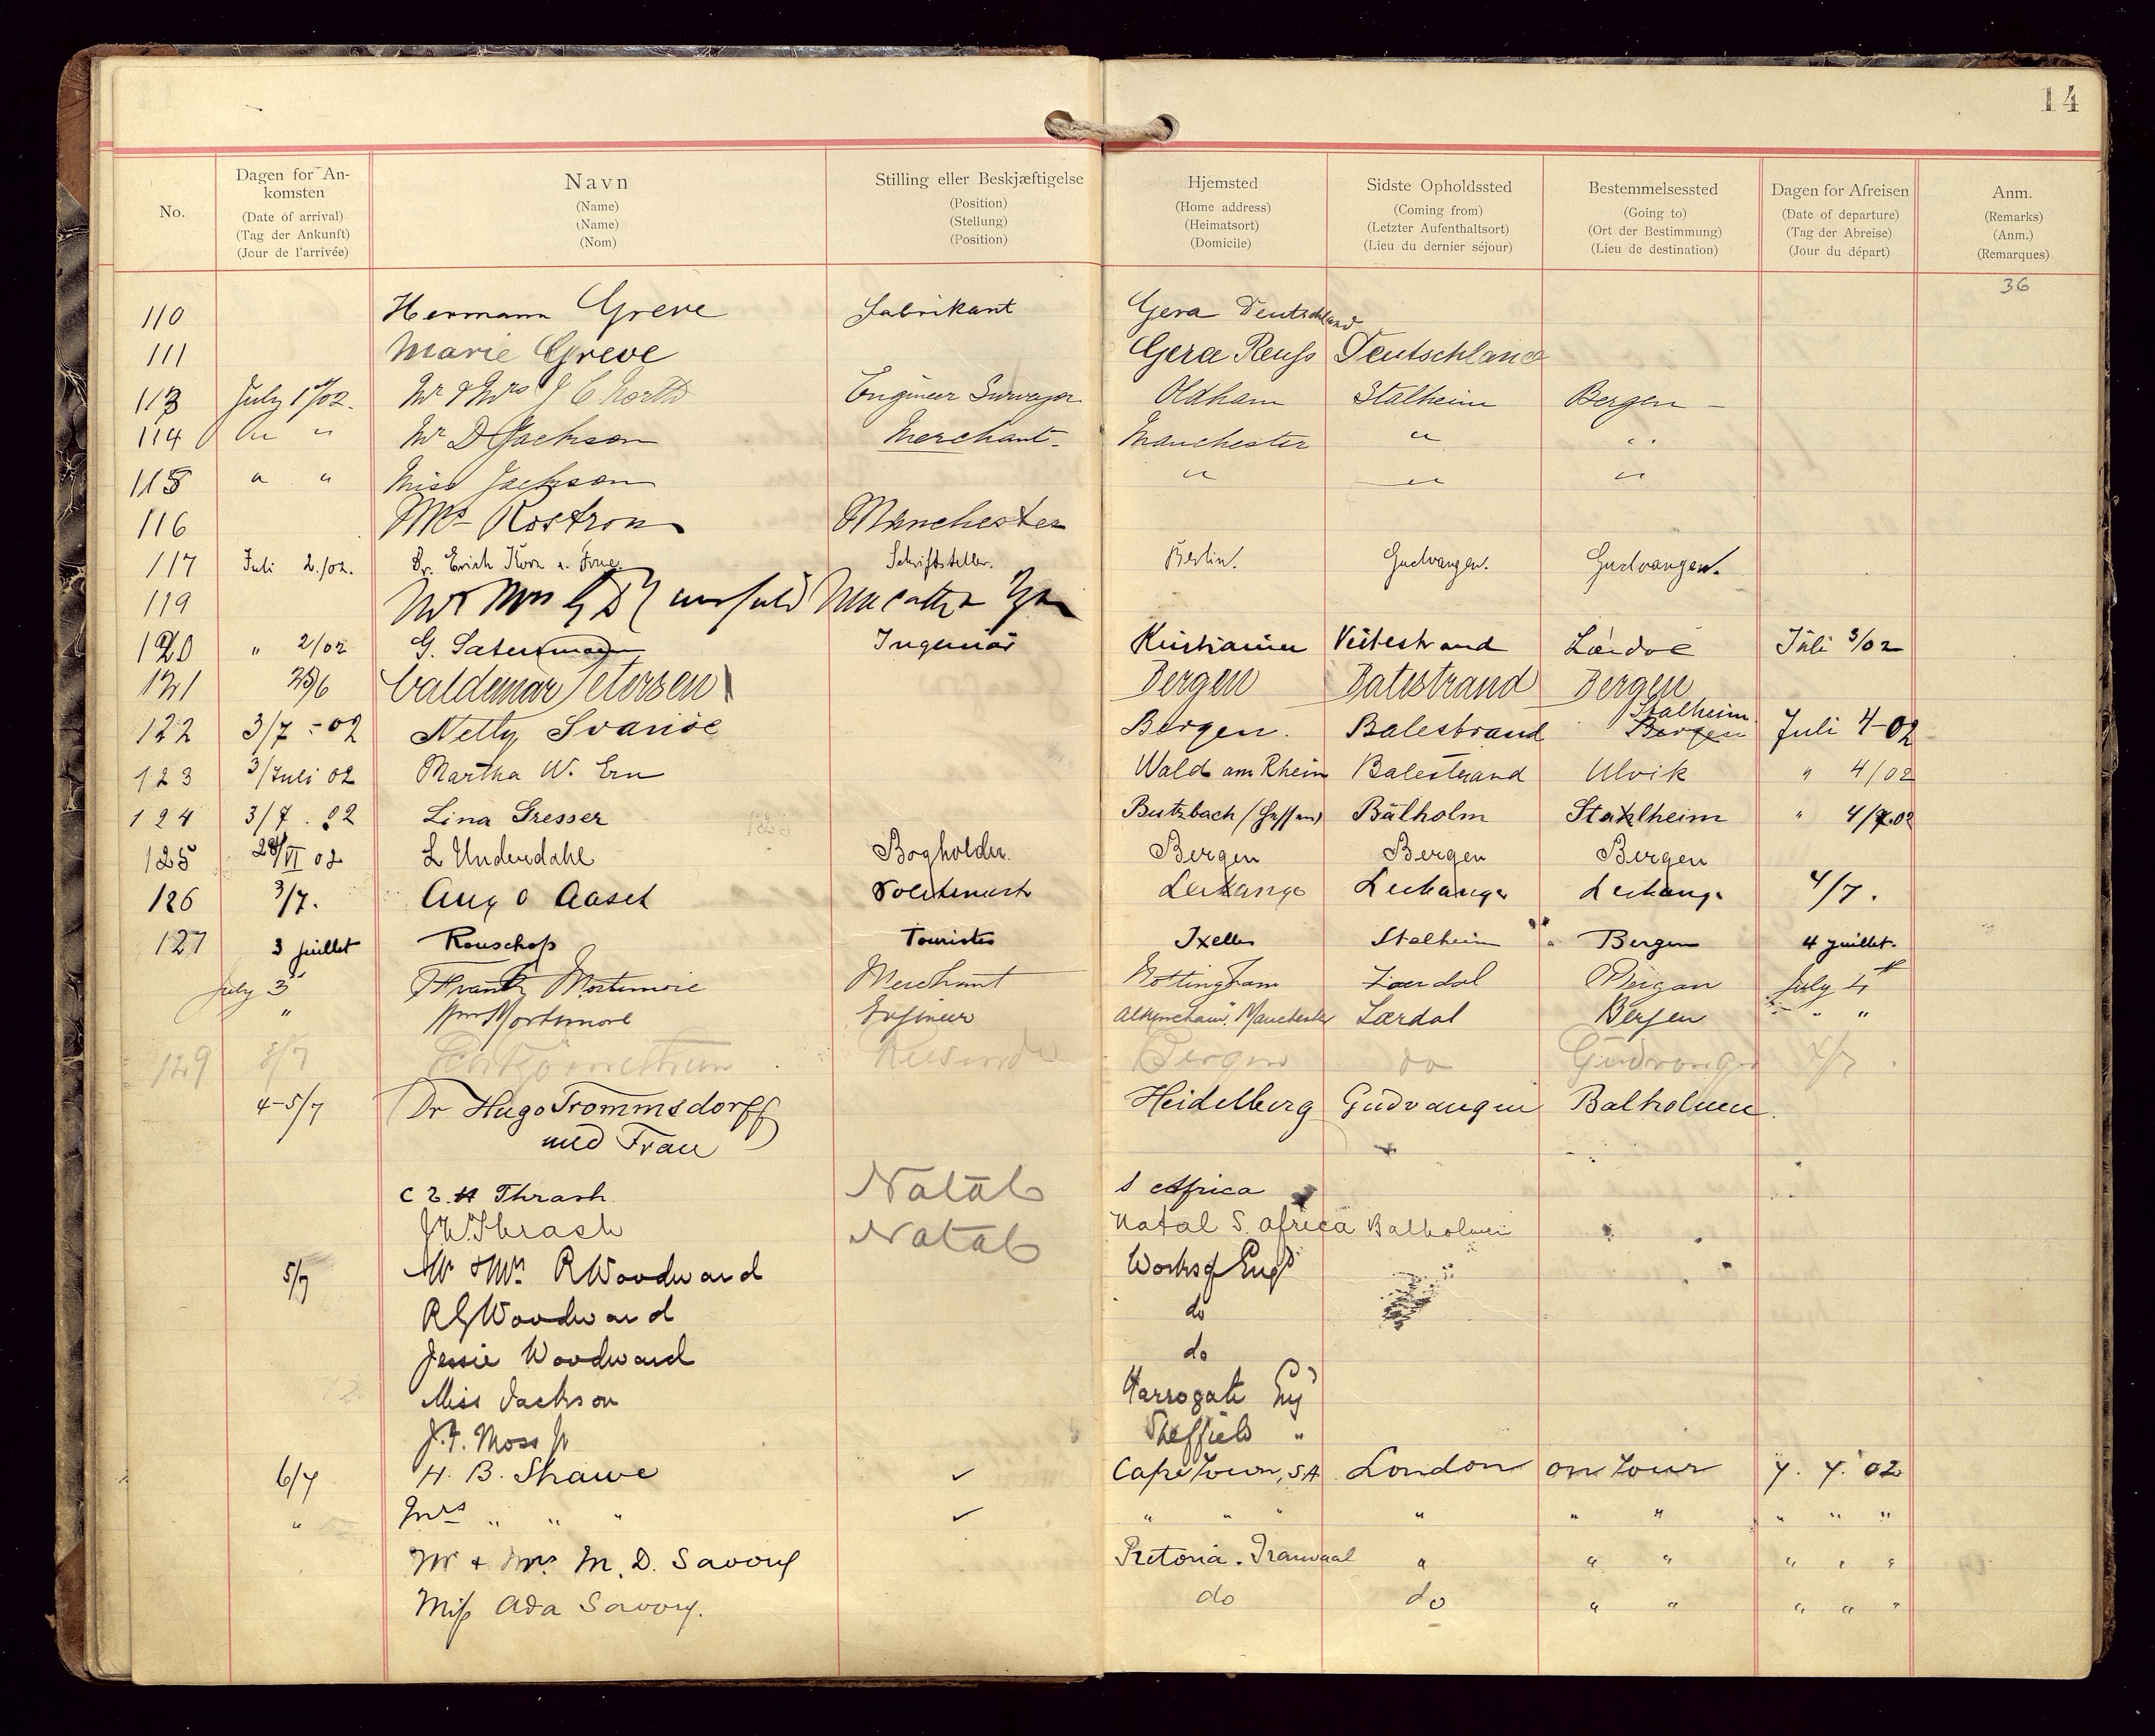 14
No. Dagen for An- Navn Stilling eller Beskjæftigelse Hjemsted Sidste Opholdssted Bestemmelsessted Dagen for Afreisen Anm.
komsten (Name) (Position) (Home address) (Coming from) (Going to) (Date of departure) (Remarks)
(Date of arrival) (Name) (Stellung) (Heimatsort) (Letzter Aufenthaltsort) (Ort der Bestimmung) (Tag der Abreise) (Anm.)
(Tag der Ankunft) (Nom) (Position) (Domicile) (Lieu du dernier séjour) (Lieu de destination) (Jour du départ) (Remarques)
(Jour de l'arrivée)
36
110 Hermann Greve Fabrikant Gera Deutschland
111 Marie Greve Gera Reuss Deutschland
113 July 1st/02. Mr & Mrs J C North Engineer Surveyor Oldham Stalheim Bergen –
114 " " Mr D Jackson Merchant Manchester " "
115 " " Miss Jackson " " "
116 Mrs Rostron Manchester
117 Juli 2./02. Dr. Erich Korn u. Frau Schriftsteller. Berlin. Gudvangen. Gudvangen.
119 Mr Mrs
120 " 2/02 G. Ingeniør Kristiania Veitestrand Juli 3/02
121 Valdemar Petersen Bergen Balestrand Bergen
122 3/7 - 02 Nelly Svanöe Bergen. Balestrand Stalheim Bergen Juli 4-02
123 3/Juli 02 Martha W. Ern Wald am Rhein Balestrand Ulvik " 4/02
124 3/7 . 02 Lina Gresser Butzbach (Hessen) Balholm Stahlheim " 4/7.02
125 28/VI 02 L Underdahl Bogholder. Bergen Bergen Bergen
126 3/7. Aug O Aaset Leikanger Leikanger Leikanger 4/7.
127 3 juillet Touriste Ixelles Stalheim Bergen 4 juillet.
July 3 Frank Mortimore Merchant Nottingham Laerdal Bergen July 4th
" Wm Mortimore Engineer Altrincham. Manchester Lærdal Bergen " "
129 Bergen do Gudvangen
4-5/7 Dr Hugo Trommsdorff Heidelberg Gudvangen Balholmen.
und Frau
Thrash Natal S Africa
J W. Thrash Natal Natal S. Africa Balholmen
5/7 Mr & Mrs R Woodward Worksop Engd
R G Woodward do
Jessie Woodward do
Miss Jackson Harrogate Eng
J. F. Moss Jr Sheffield "
6/7 H. B. Shawe ✓ Cape Town, S A London on Tour 7. 7. 02
" Mrs " " " ✓ " " " " " " " " "
Mr & Mrs M. D. Savory Pretoria. Transvaal " " " " " "
Miss Ada Savory. do do " " " " "